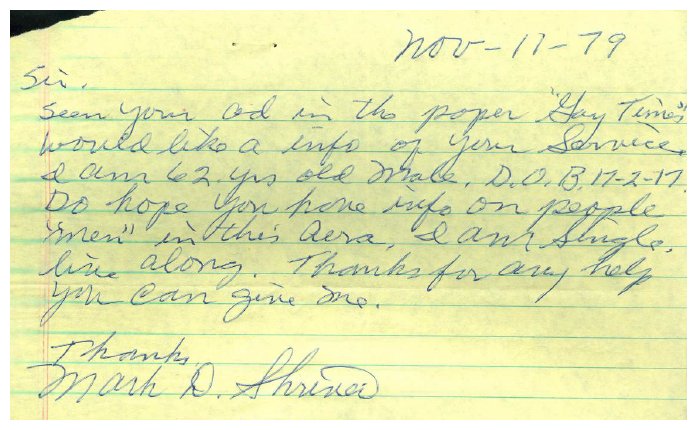 Nov-11-79
Sir.
Seen your ad in the paper "Gay Times"
would like a info of your Service.
I am 62 yrs old Male. D.O.B. 11-2-17.
Do hope you have info on people
"men" in this Aera. I am Single.
live along. Thanks for any help
you can give me.
Thanks
Mark D. Shriver